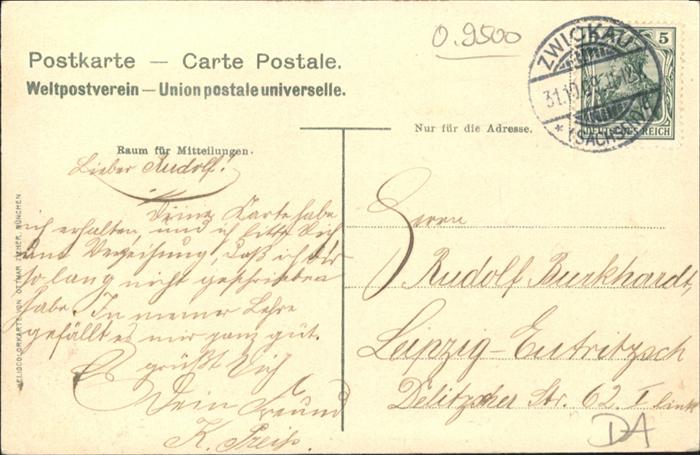 0.9500
Postkarte — Carte Postale.
Weltpostverein — Union postale universelle.
ZWICKAU
31.10.
* (SACHSEN)
5
DEUTSCHES REICH
Nur für die Adresse.
Raum für Mitteilungen.
Lieber Rudolf!
Deine Karte habe
ich erhalten, und ich bitte Dich
um Verzeihung, daß ich Dir
so lang nicht geschrieben
habe. In meiner Lehre
gefällt es mir ganz gut.
Es grüßt Dich
Dein Freund
K. Preiß.
Herrn
Rudolf Burkhardt,
Leipzig-Eutritzsch
Delitzscher Str. 62 I links
DA
HELIOCOLORKARTE VON OTTMAR ZIEHER, MÜNCHEN